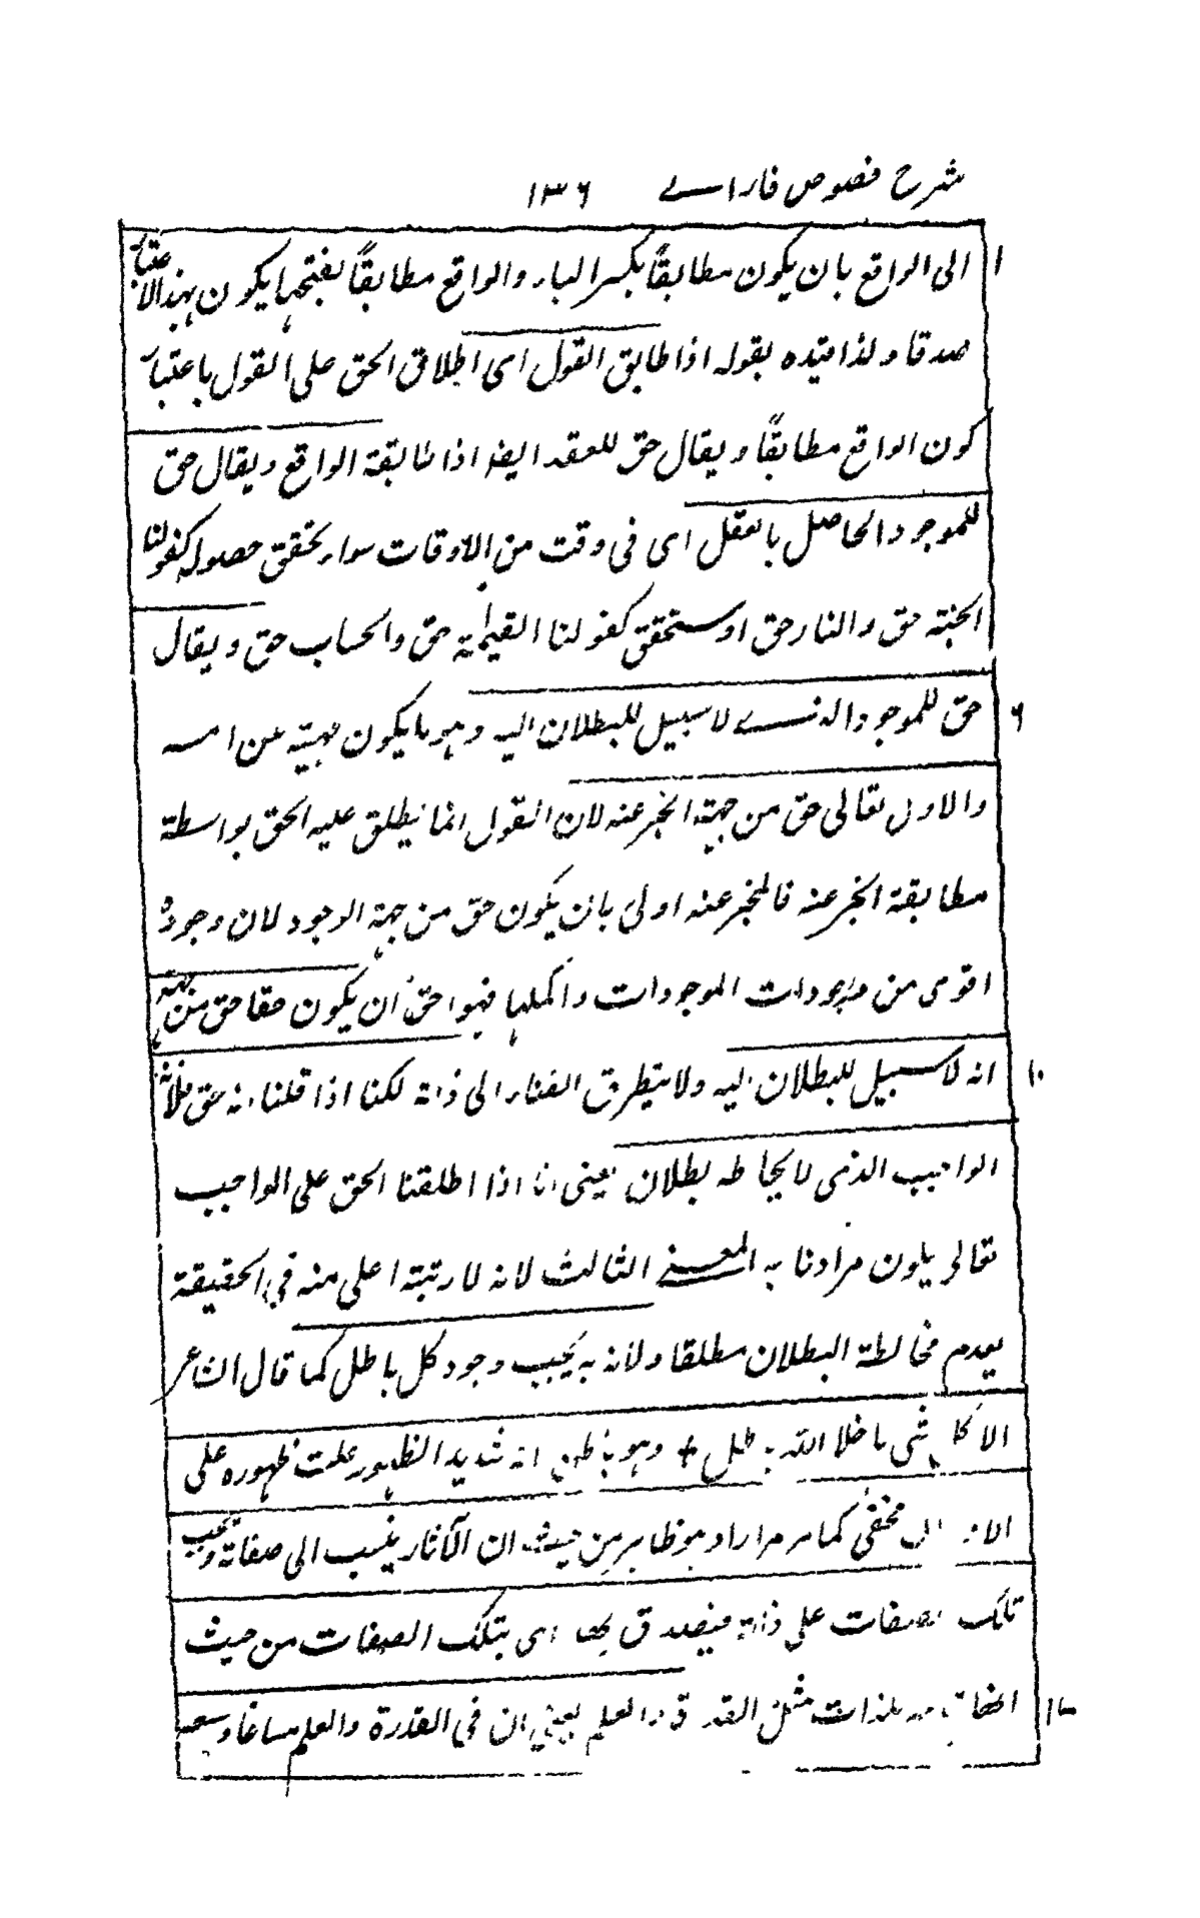 شرح فصوص فارابے ١٣٦
١ الى الواقع بان يكون مطابقاً بكسر الباء والواقع مطابقاً بفتحها يكون بهذا الاعتبار
صدقا ولذا قيده بقوله اذا طابق القول اى اطلاق الحق على القول باعتبار
كون الواقع مطابقاً ويقال حق للعقد ايضا اذا طابقة الواقع ويقال حق
للموجود الحاصل بالعقل اى فى وقت من الاوقات سواء تحقق حصوله كقولنا
الجنة حق والنار حق او ستحقق كقولنا القيمة حق والحساب حق ويقال
٦ حق للموجود الذے لا سبيل للبطلان اليه وهو ما يكون مهيته عن
والاول تعالى حق من جهة المخبر عنه لان القول انما يطلق عليه الحق بواسطة
مطابقة المخبر عنه فالمخبر عنه اولى بان يكون حق من جهة الوجود لان وجوده
اقوى من وجودات الموجودات واكملها فهو احق ان يكون حقا حق من جهة
١٠ انه لا سبيل للبطلان اليه ولا يتطرق الفناء الى ذاته لكنا اذا قلنا انه حق فلانه
الواجب الذى لا يخالطه بطلان يعنى انا اذا اطلقنا الحق على الواجب
تعالى يكون مرادنا به المعنے الثالث لانه لا رتبة اعلى منه فى الحقيقة
بعدم مخالطة البطلان مطلقا ولانه به يجب وجود كل باطل كما قال الشاعر
الا كل شى ما خلا الله باطل + وهو باطن انه شديد الظهور غلبت ظهوره على
مخفى كما مر مرارا وهو ظاهر من حيث ان الآثار ينسب الى صفاته ويجب
تلك الصفات على ذاته فيصدق بها اى بتلك الصفات من حيث
للذات مثل القدرة والعلم يعنى ان فى القدرة والعلم مساغا وسعة